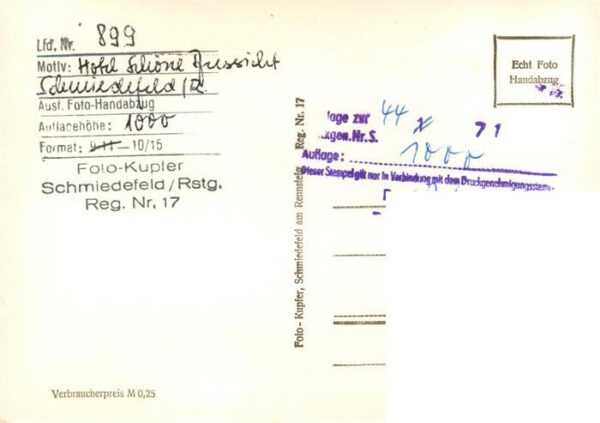 Lfd. Nr. 899
Motiv: Hotel Schöne Aussicht
Schmiedefeld/R.
Ausf. Foto-Handabzug
Auflagehöhe: 1000
Format: 9-14 10/15
Foto-Kupfer
Schmiedefeld/Rstg.
Reg. Nr. 17
Verbraucherpreis M 0,25
Foto-Kupfer, Schmiedefeld am Rennsteig Reg. Nr. 17
lage zur 44 71
kgen. Nr. S.
Auflage: 1000
Dieser Stempel gilt nur in Verbindung mit dem Druckgenehmigungsstem
Echt Foto
Handabzug